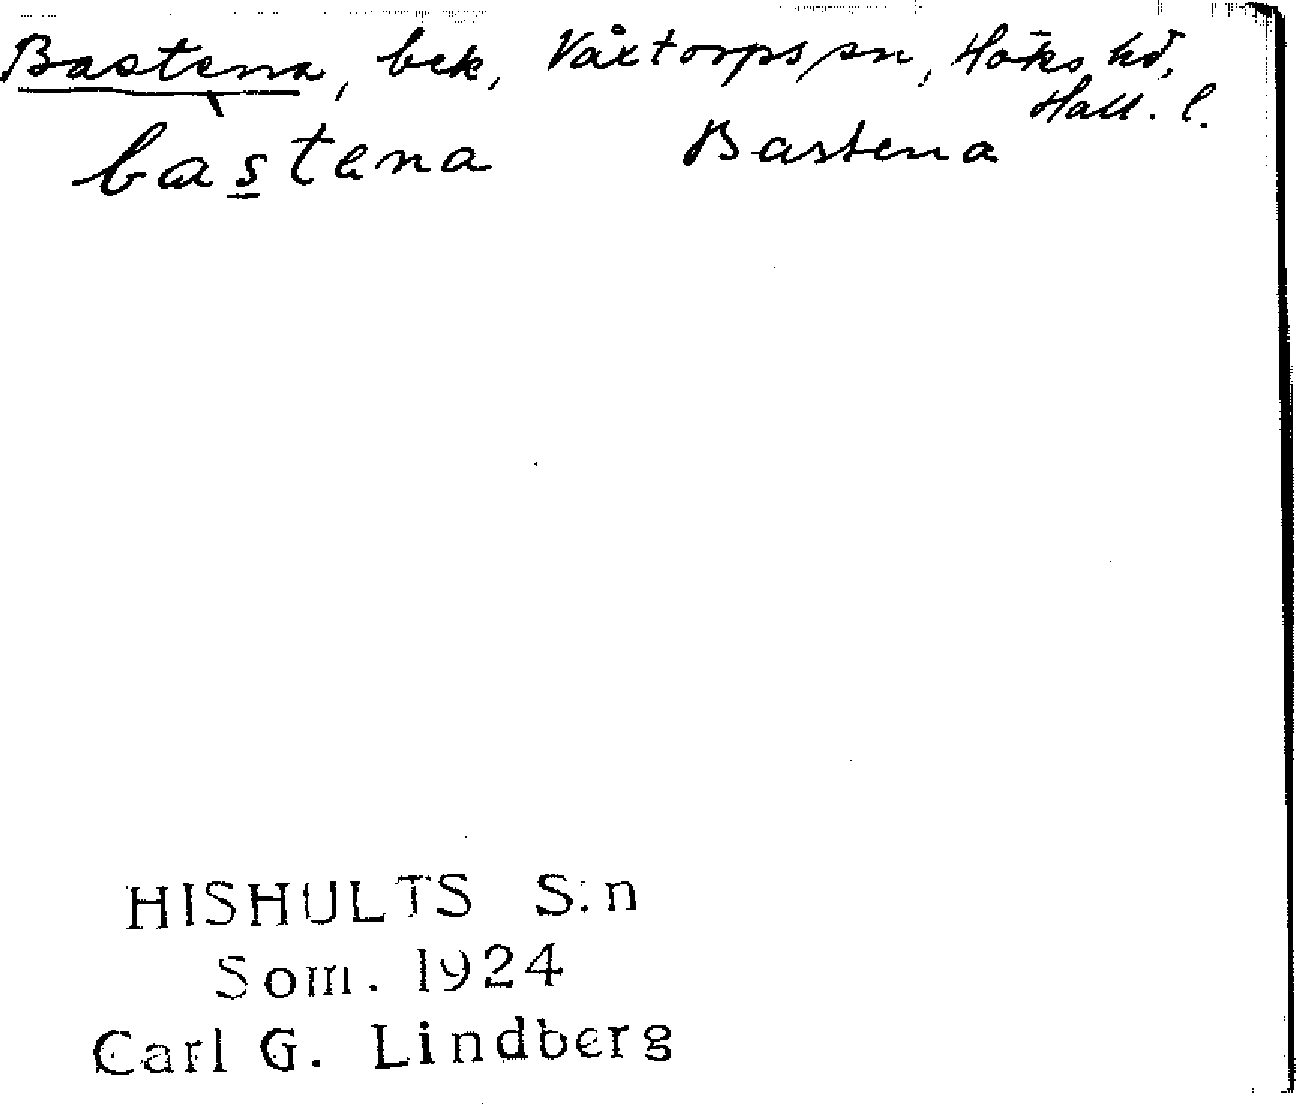 Bastena, bek, Våxtorps sn, Höks hd,
Hall. l.
bastena Bastena
HISHULTS S:n
Som. 1924
Carl G. Lindberg